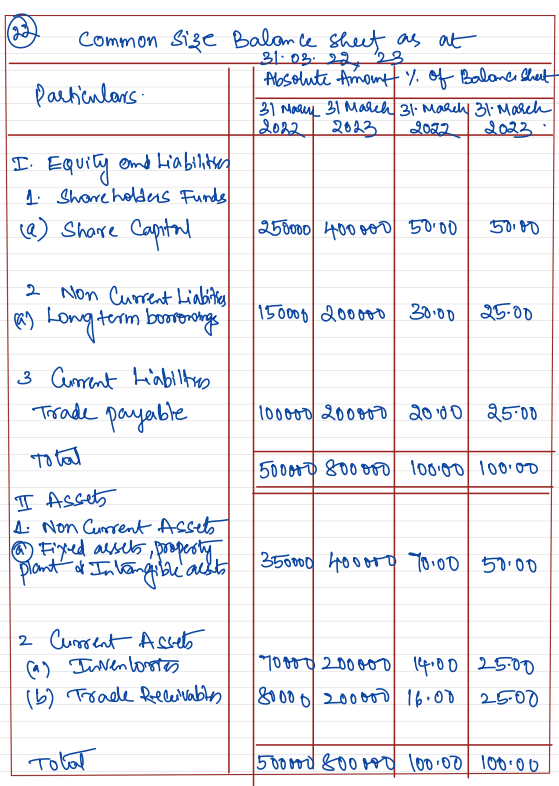 22
Common Size Balance sheet as at
31.03.22, 23
Particulars. Absolute Amount % of Balance sheet
31 March 31 March 31 March 31 March
2022 2023 2022 2023.
I. Equity and Liabilities
1. Shareholders Funds
(a) Share Capital 250000 400000 50.00 50.00
2 Non Current Liabilities
(a) Long term borrowings 150000 200000 30.00 25.00
3 Current Liabilities
Trade payable 100000 200000 20.00 25.00
Total 500000 800000 100.00 100.00
II Assets
1. Non Current Assets
(a) Fixed assets, property
plant & Intangible assets 350000 400000 70.00 50.00
2 Current Assets
(a) Inventories 70000 200000 14.00 25.00
(b) Trade Receivables 80000 200000 16.00 25.00
Total 500000 800000 100.00 100.00